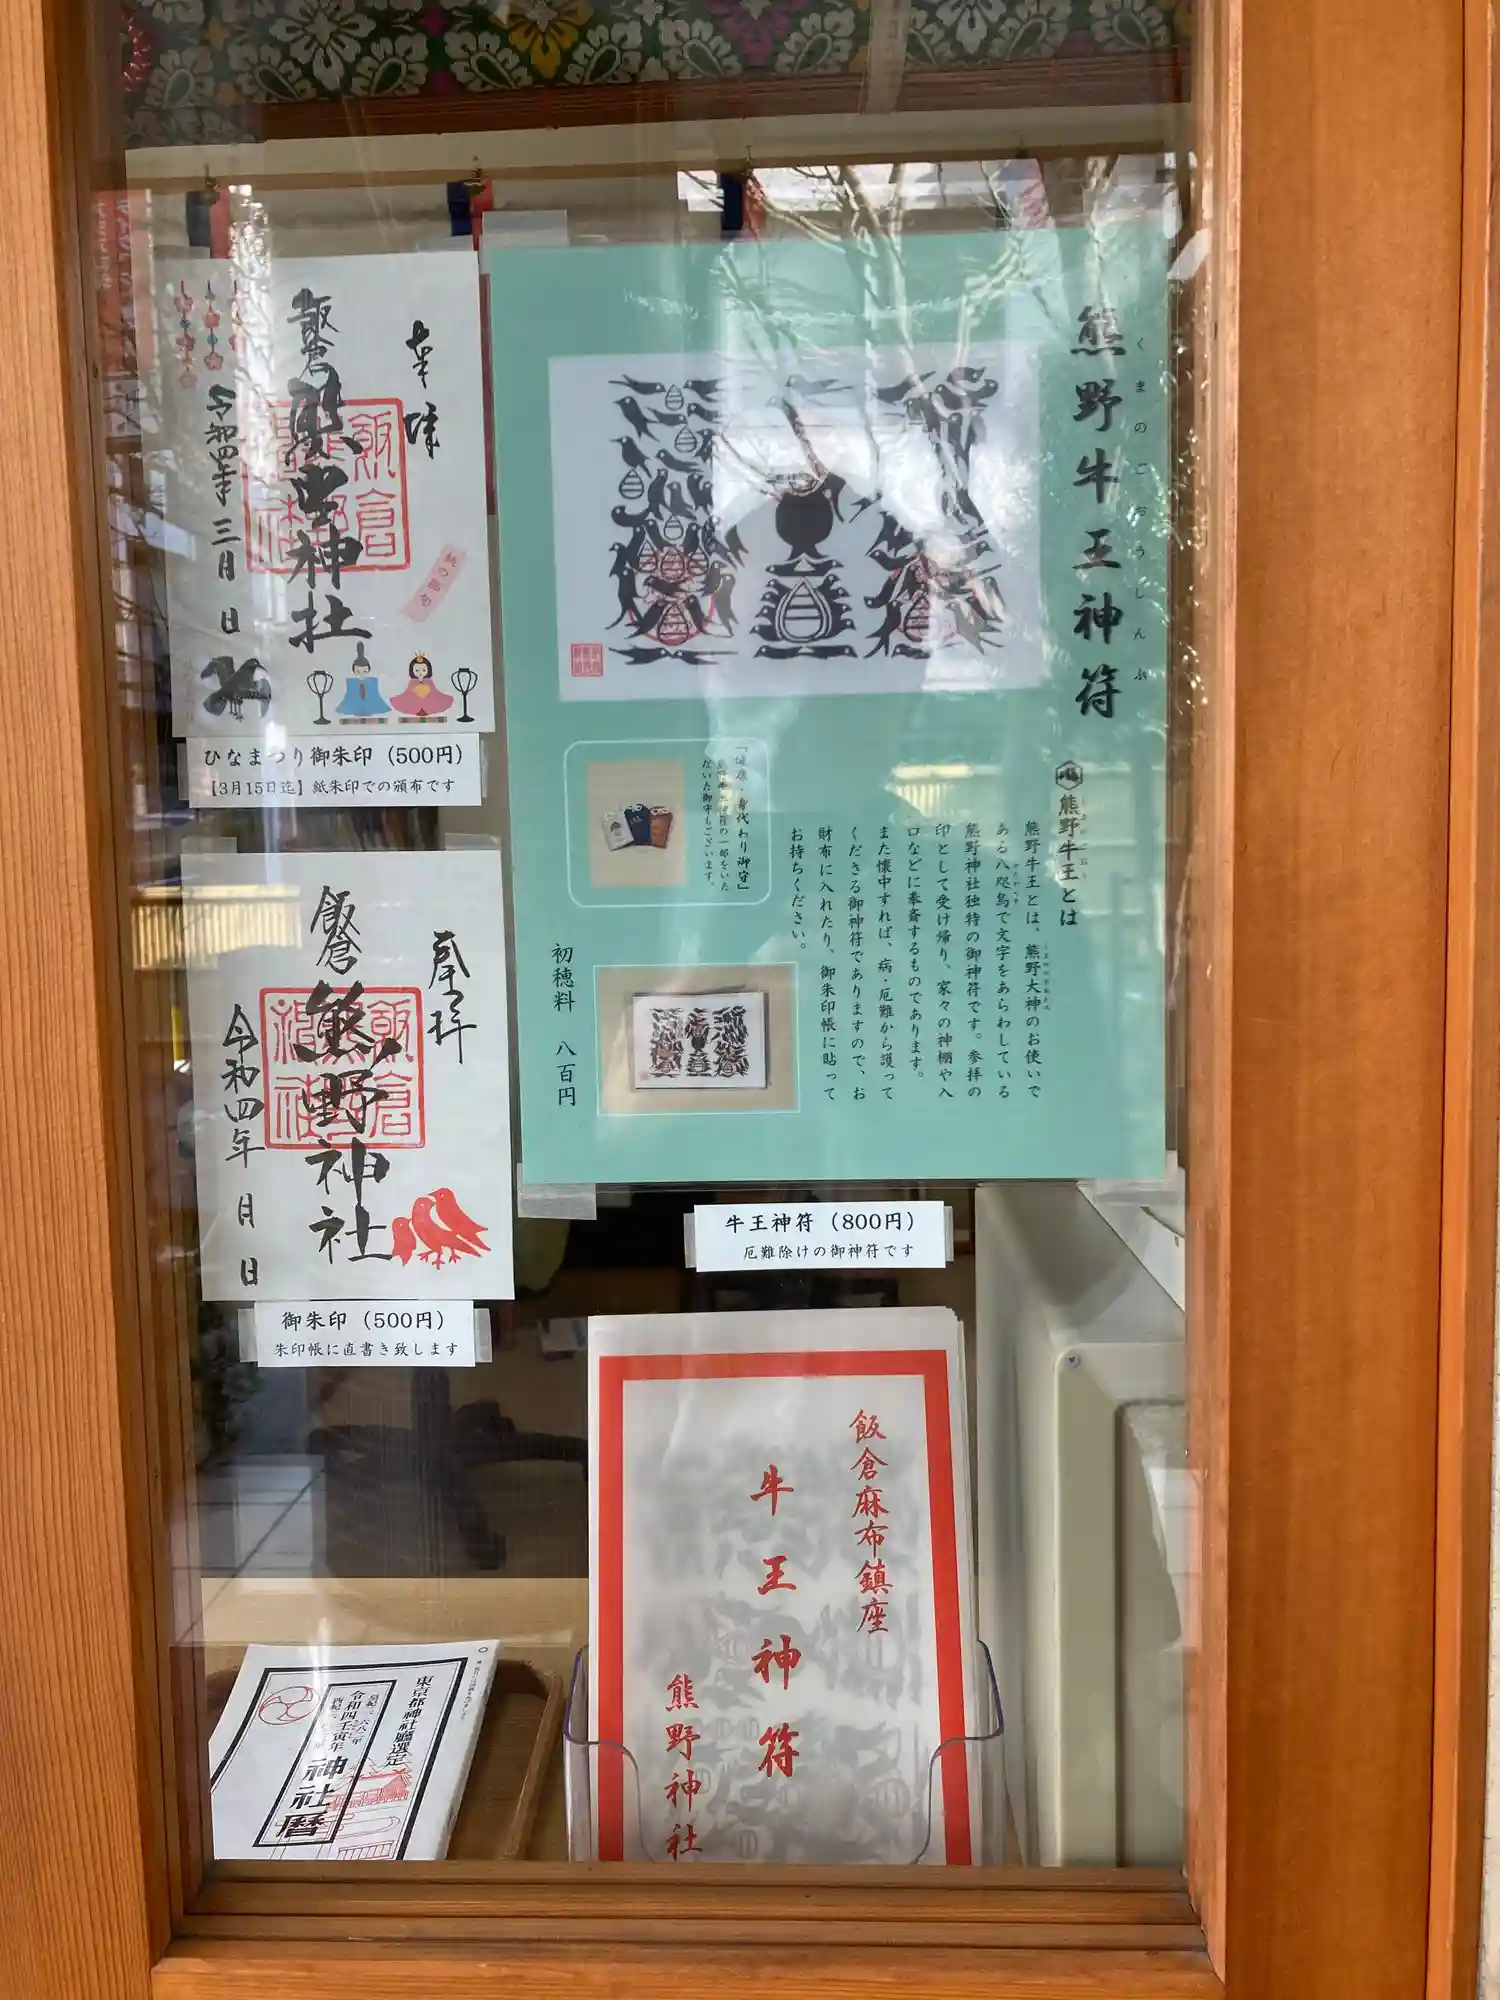 奉拝
飯倉
熊野神社
令和四年三月 日
桃の節句
ひなまつり御朱印(500円)
【3月15日迄】紙朱印での頒布です
奉拝
飯倉
熊野神社
令和四年 月 日
御朱印(500円)
朱印帳に直書き致します
熊野牛王神符
くまのごおうしんぷ
熊野牛王とは
熊野牛王とは、熊野大神のお使いで
ある八咫烏で文字をあらわしている
熊野神社独特の御神符です。参拝の
印として受け帰り、家々の神棚や入
口などに奉斎するものであります。
また懐中すれば、病・厄難から護って
くださる御神符でありますので、お
財布に入れたり、御朱印帳に貼って
お持ちください。
「健康・身代わり御守」
熊野牛王神符の一部をいた
だいた御守もございます。
初穂料 八百円
牛王神符(800円)
厄難除けの御神符です
飯倉麻布鎮座
牛王神符
熊野神社
東京都神社庁選定
令和四壬寅年
神社暦